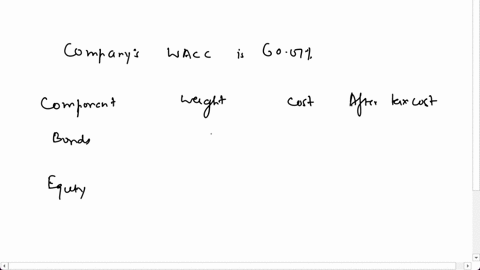 Company's WACC is 60.07%
Component Weight Cost After tax cost
Bonds
Equity